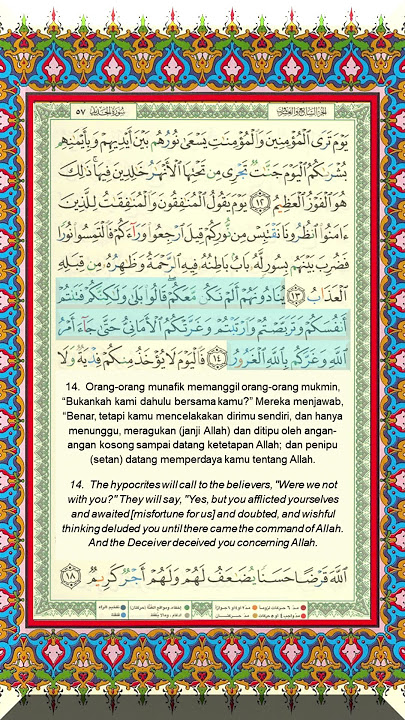 الجزء السابع والعشرون
سورة الحديد ٥٧
يَوْمَ تَرَى ٱلْمُؤْمِنِينَ وَٱلْمُؤْمِنَٰتِ يَسْعَىٰ نُورُهُم بَيْنَ أَيْدِيهِمْ وَبِأَيْمَٰنِهِم
بُشْرَىٰكُمُ ٱلْيَوْمَ جَنَّٰتٌ تَجْرِى مِن تَحْتِهَا ٱلْأَنْهَٰرُ خَٰلِدِينَ فِيهَا ۚ ذَٰلِكَ
هُوَ ٱلْفَوْزُ ٱلْعَظِيمُ ١٢ يَوْمَ يَقُولُ ٱلْمُنَٰفِقُونَ وَٱلْمُنَٰفِقَٰتُ لِلَّذِينَ
ءَامَنُوا۟ ٱنظُرُونَا نَقْتَبِسْ مِن نُّورِكُمْ قِيلَ ٱرْجِعُوا۟ وَرَآءَكُمْ فَٱلْتَمِسُوا۟ نُورًا
فَضُرِبَ بَيْنَهُم بِسُورٍ لَّهُۥ بَابٌۢ بَاطِنُهُۥ فِيهِ ٱلرَّحْمَةُ وَظَٰهِرُهُۥ مِن قِبَلِهِ
ٱلْعَذَابُ ١٣ يُنَادُونَهُمْ أَلَمْ نَكُن مَّعَكُمْ ۖ قَالُوا۟ بَلَىٰ وَلَٰكِنَّكُمْ فَتَنتُمْ
أَنفُسَكُمْ وَتَرَبَّصْتُمْ وَٱرْتَبْتُمْ وَغَرَّتْكُمُ ٱلْأَمَانِىُّ حَتَّىٰ جَآءَ أَمْرُ
ٱللَّهِ وَغَرَّكُم بِٱللَّهِ ٱلْغَرُورُ ١٤ فَٱلْيَوْمَ لَا يُؤْخَذُ مِنكُمْ فِدْيَةٌ وَلَا
14. Orang-orang munafik memanggil orang-orang mukmin,
“Bukankah kami dahulu bersama kamu?” Mereka menjawab,
“Benar, tetapi kamu mencelakakan dirimu sendiri, dan hanya
menunggu, meragukan (janji Allah) dan ditipu oleh angan-
angan kosong sampai datang ketetapan Allah; dan penipu
(setan) datang memperdaya kamu tentang Allah.
14. The hypocrites will call to the believers, "Were we not
with you?" They will say, "Yes, but you afflicted yourselves
and awaited [misfortune for us] and doubted, and wishful
thinking deluded you until there came the command of Allah.
And the Deceiver deceived you concerning Allah.
ٱللَّهَ قَرْضًا حَسَنًا يُضَٰعَفُ لَهُمْ وَلَهُمْ أَجْرٌ كَرِيمٌ ١٨